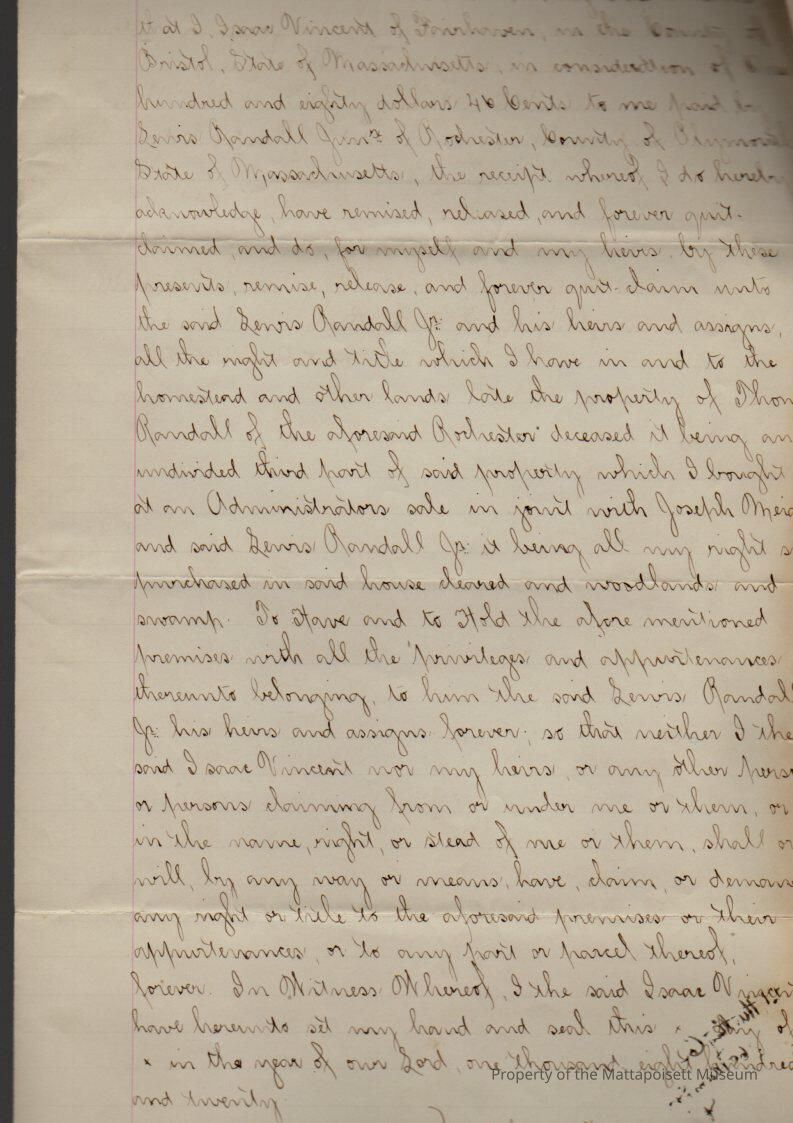 that I, Isaac Vincent of Fairhaven, in the County of
Bristol, State of Massachusetts, in consideration of
hundred and eighty dollars 46 Cents to me paid by
Lewis Randall Junr. of Rochester, County of Plymouth
State of Massachusetts, the receipt whereof I do hereby
acknowledge, have remised, released, and forever quit-
claimed, and do, for myself and my heirs, by these
presents, remise, release, and forever quit-claim unto
the said Lewis Randall Jr. and his heirs and assigns,
all the right and title which I have in and to the
homestead and other lands late the property of Thom
Randall of the aforesaid Rochester deceased it being an
undivided third part of said property which I bought
at an Administrators sale in joint with Joseph Mei
and said Lewis Randall Jr. it being all my right s
purchased in said house cleared and woodlands and
swamp. To Have and to Hold the afore mentioned
premises with all the privileges and appurtenances
thereunto belonging, to him the said Lewis Randal
Jr. his heirs and assigns forever; so that neither I the
said Isaac Vincent nor my heirs, or any other pers
or persons claiming from or under me or them, or
in the name, right, or stead of me or them, shall or
will, by any way or means, have, claim, or deman
any right or title to the aforesaid premises or their
appurtenances, or to any part or parcel thereof,
forever. In Witness Whereof, I the said Isaac Vincen
have hereunto set my hand and seal this × day of
× in the year of our Lord, one thousand eight hundred
and twenty
Property of the Mattapoisett Museum